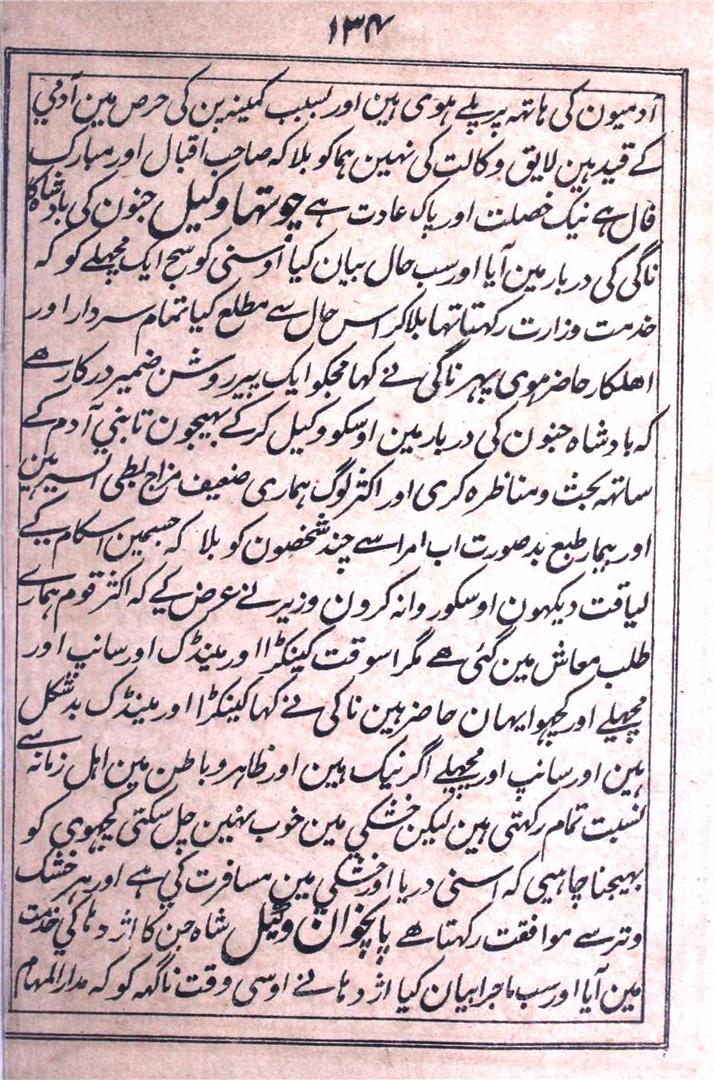 ۱۳۴
آدمیون کی ہاتہہ پر پلے ہوی ہین اور بسبب کمینہ پن کی حرص مین آدمی
کے قید ہین لایق وکالت کی نہین ہما کو بلا کہ صاحب اقبال اور مبارک
فال ہے نیک خصلت اور پاک عادت ہے چوتہا وکیل جنون کی بادشاہ کا
ناگی کی دربار مین آیا اور سب حال بیان کیا اوسنی کوسج ایک مچھلے کو کہ
خدمت وزارت رکہتا تہا بلا کر اس حال سے مطلع کیا تمام سردار اور
اہلکار حاضر ہوی پہر ناگی نے کہا مجکو ایک پیر روشن ضمیر درکار ھے
کہ بادشاہ جنون کی دربار مین اوسکو وکیل کر کے بہیجون تا بنی آدم کے
ساتہہ بحث و مناظرہ کری اور اکثر لوگ ہماری ضعیف مزاج بطی السیر ہین
اور بیمار طبع بد صورت اب امرا سے چند شخصون کو بلا کہ جسمین اس کام کے
لیاقت دیکہون اوسکو روانہ کرون وزیر نے عرض کیے کہ اکثر قوم ہمارے
طلب معاش مین گئی ھے مگر اسوقت کینکڑا اور مینڈک اور سانپ اور
مچھلے اور کچہوا یہان حاضر ہین ناکی نے کہا کینکڑا اور مینڈک بد شکل
ہین اور سانپ اور مچھلے اگر نیک ہین اور ظاہر و باطن مین اہل زمانہ سے
نسبت تمام رکہتی ہین لیکن خشکی مین خوب نہین چل سکتی کچہوی کو
بہیجنا چاہیی کہ اسنی دریا اور خشکی مین مسافرت کی ہے اور ہر خشک
و تر سے موافقت رکہتا ھے پانچوان وکیل شاہ جن کا اژدہا کی خدمت
مین آیا اور سب ماجرا بیان کیا اژدہا نے اوسی وقت ناگہہ کو کہ مدار المہام